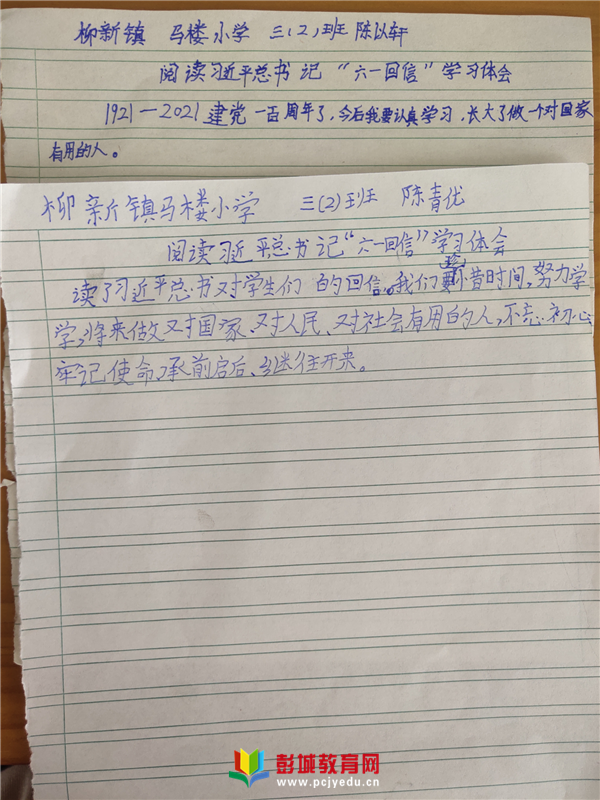 柳新镇 马楼小学 三(2)班 陈以轩
阅读习近平总书记“六一回信”学习体会
1921—2021建党一百周年了,今后我要认真学习,长大了做一个对国家
有用的人。
柳新镇马楼小学 三(2)班 陈青优
阅读习近平总书记“六一回信”学习体会
读了习近平总书对学生们的回信。我们要珍惜时间,努力学
学,将来做对国家、对人民、对社会有用的人,不忘初心
牢记使命,承前启后、继往开来。
彭城教育网
www.pcjyedu.cn